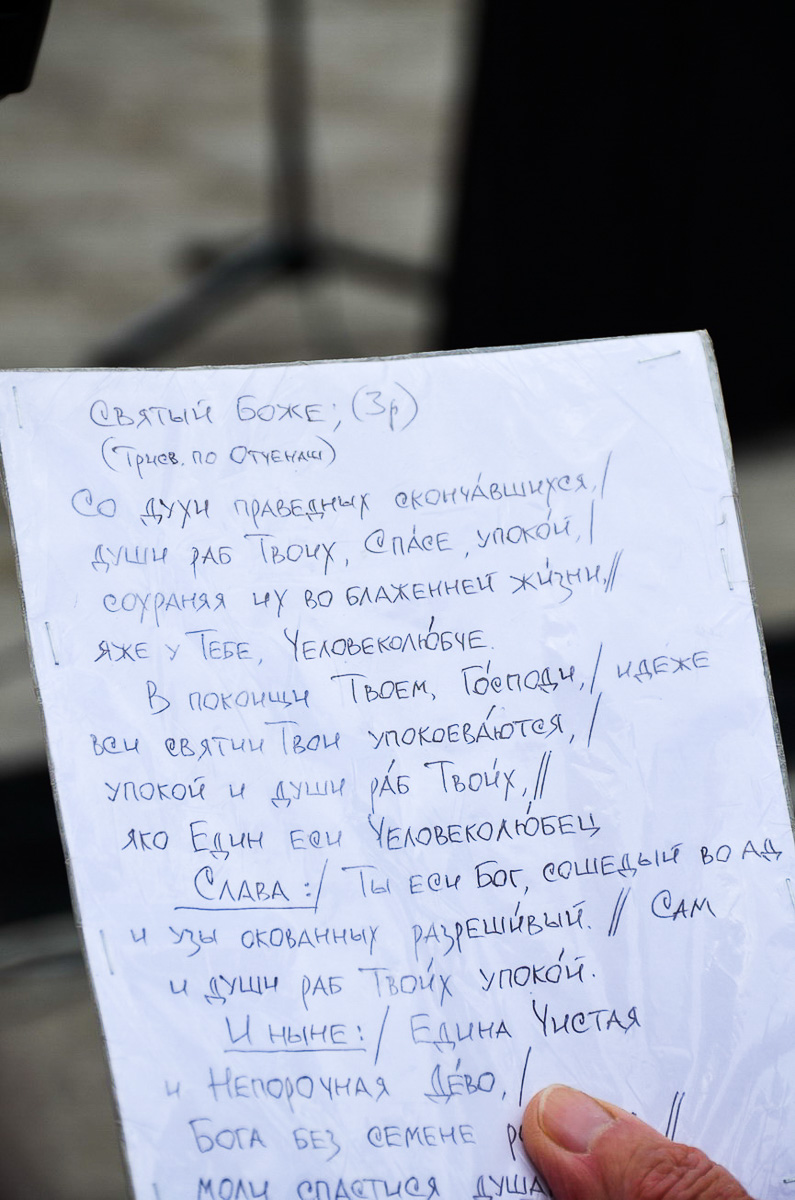 Святый Боже; (3р)
(Трисв. по Отченаш)
Со духи праведных сконча́вшихся,/
души раб Твоих, Спа́се, упоко́й,/
сохраняя их во блаженней жи́зни,//
яже у Тебе, Человеколю́бче.
В покоищи Твоем, Го́споди,/ идеже
вси святии Твои упокоева́ются,/
упокой и души ра́б Твои́х,//
яко Един еси Человеколю́бец
Слава:/ Ты еси Бог, сошедый во ад
и узы окованных разреши́вый. // Сам
и души раб Твои́х упоко́й.
И ныне:/ Едина Чистая
и Непорочная Де́во,/
Бога без семене //
моли спастися